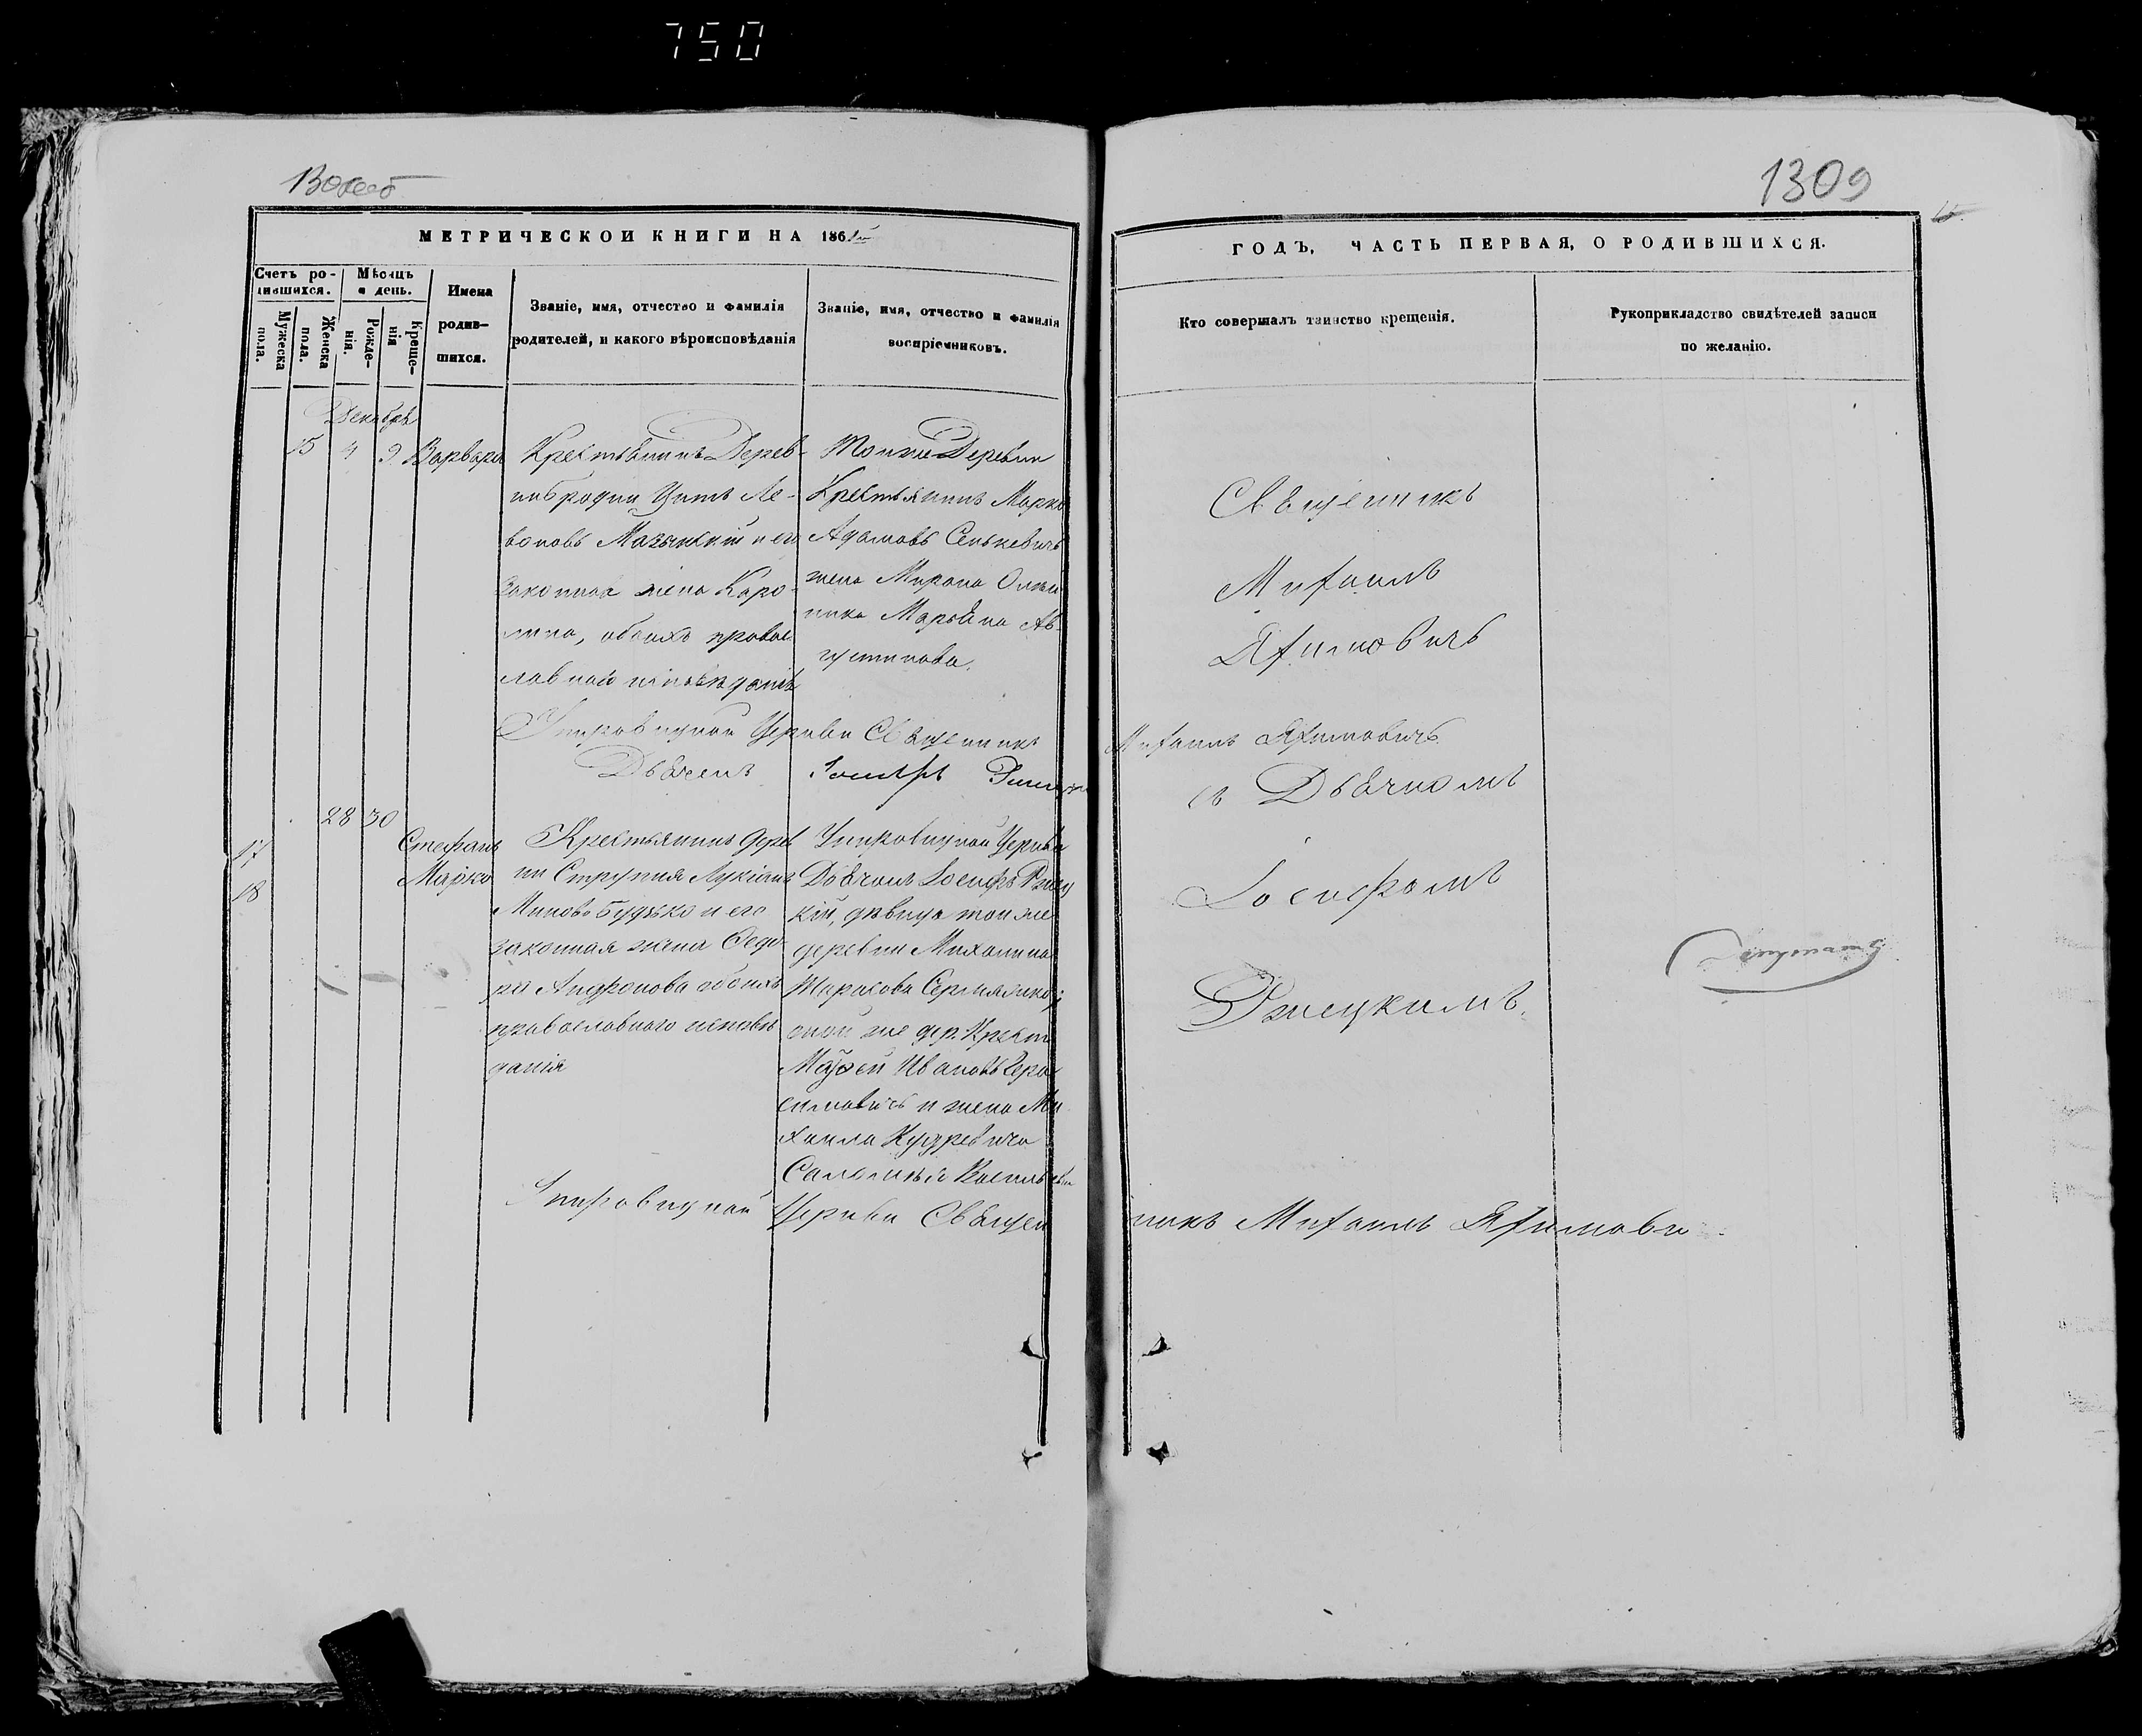 750
1309
МЕТРИЧЕСКОЙ КНИГИ НА 186
ГОДЪ, ЧАСТЬ ПЕРВАЯ, О РОДИВШИХСЯ.
Счетъ ро-
дившихся.
Мужеска
пола.
Женска
пола.
Мѣсяцъ
и день.
Рожде-
нія.
Креще-
нія
Имена
родив-
шихся.
Званіе, имя, отчество и фамилія
родителей, и какого вѣроисповѣданія
Званіе, имя, отчество и фамилія
воспріемниковъ.
Кто совершалъ таинство крещенія.
Рукоприкладство свидѣтелей записи
по желанію.
Декабрь
15 4 9 Варвара
Крестьянинъ Дерев-
ни Бродни Ле-
воновъ и его
законная жена Каро-
лина, обоихъ правос
лавнаго исповѣданія
Тойже Деревни
Крестьянинъ Марко
Адамовъ Сенькевичъ
жена Мирона Олью
ника Марьяна Ав-
густинова.
Священникъ
Михаилъ
Яхимовичъ
Церкви Священникъ Михаилъ Яхимовичъ
Дьячекъ Іосифъ
съ Дьячкомъ
Іосифомъ
Ржецкимъ.
28 30
17
18
Стефанъ
Марко
Крестьянинъ дерев
ни Лукіанъ
Миновъ Будько и его
законная жена Ѳедо-
ра Андронова обоихъ
православнаго исповѣ
данія
Церкви
Дьячокъ Іосифъ Ржец
кій, дѣвица тойже
деревни Михалина
Тарасова
оной же дер. Крест
Ивановъ Гера
симовичъ и жена Ми
хаила Кудревича
Васильева
Церкви Священ
никъ Михаилъ Яхимови